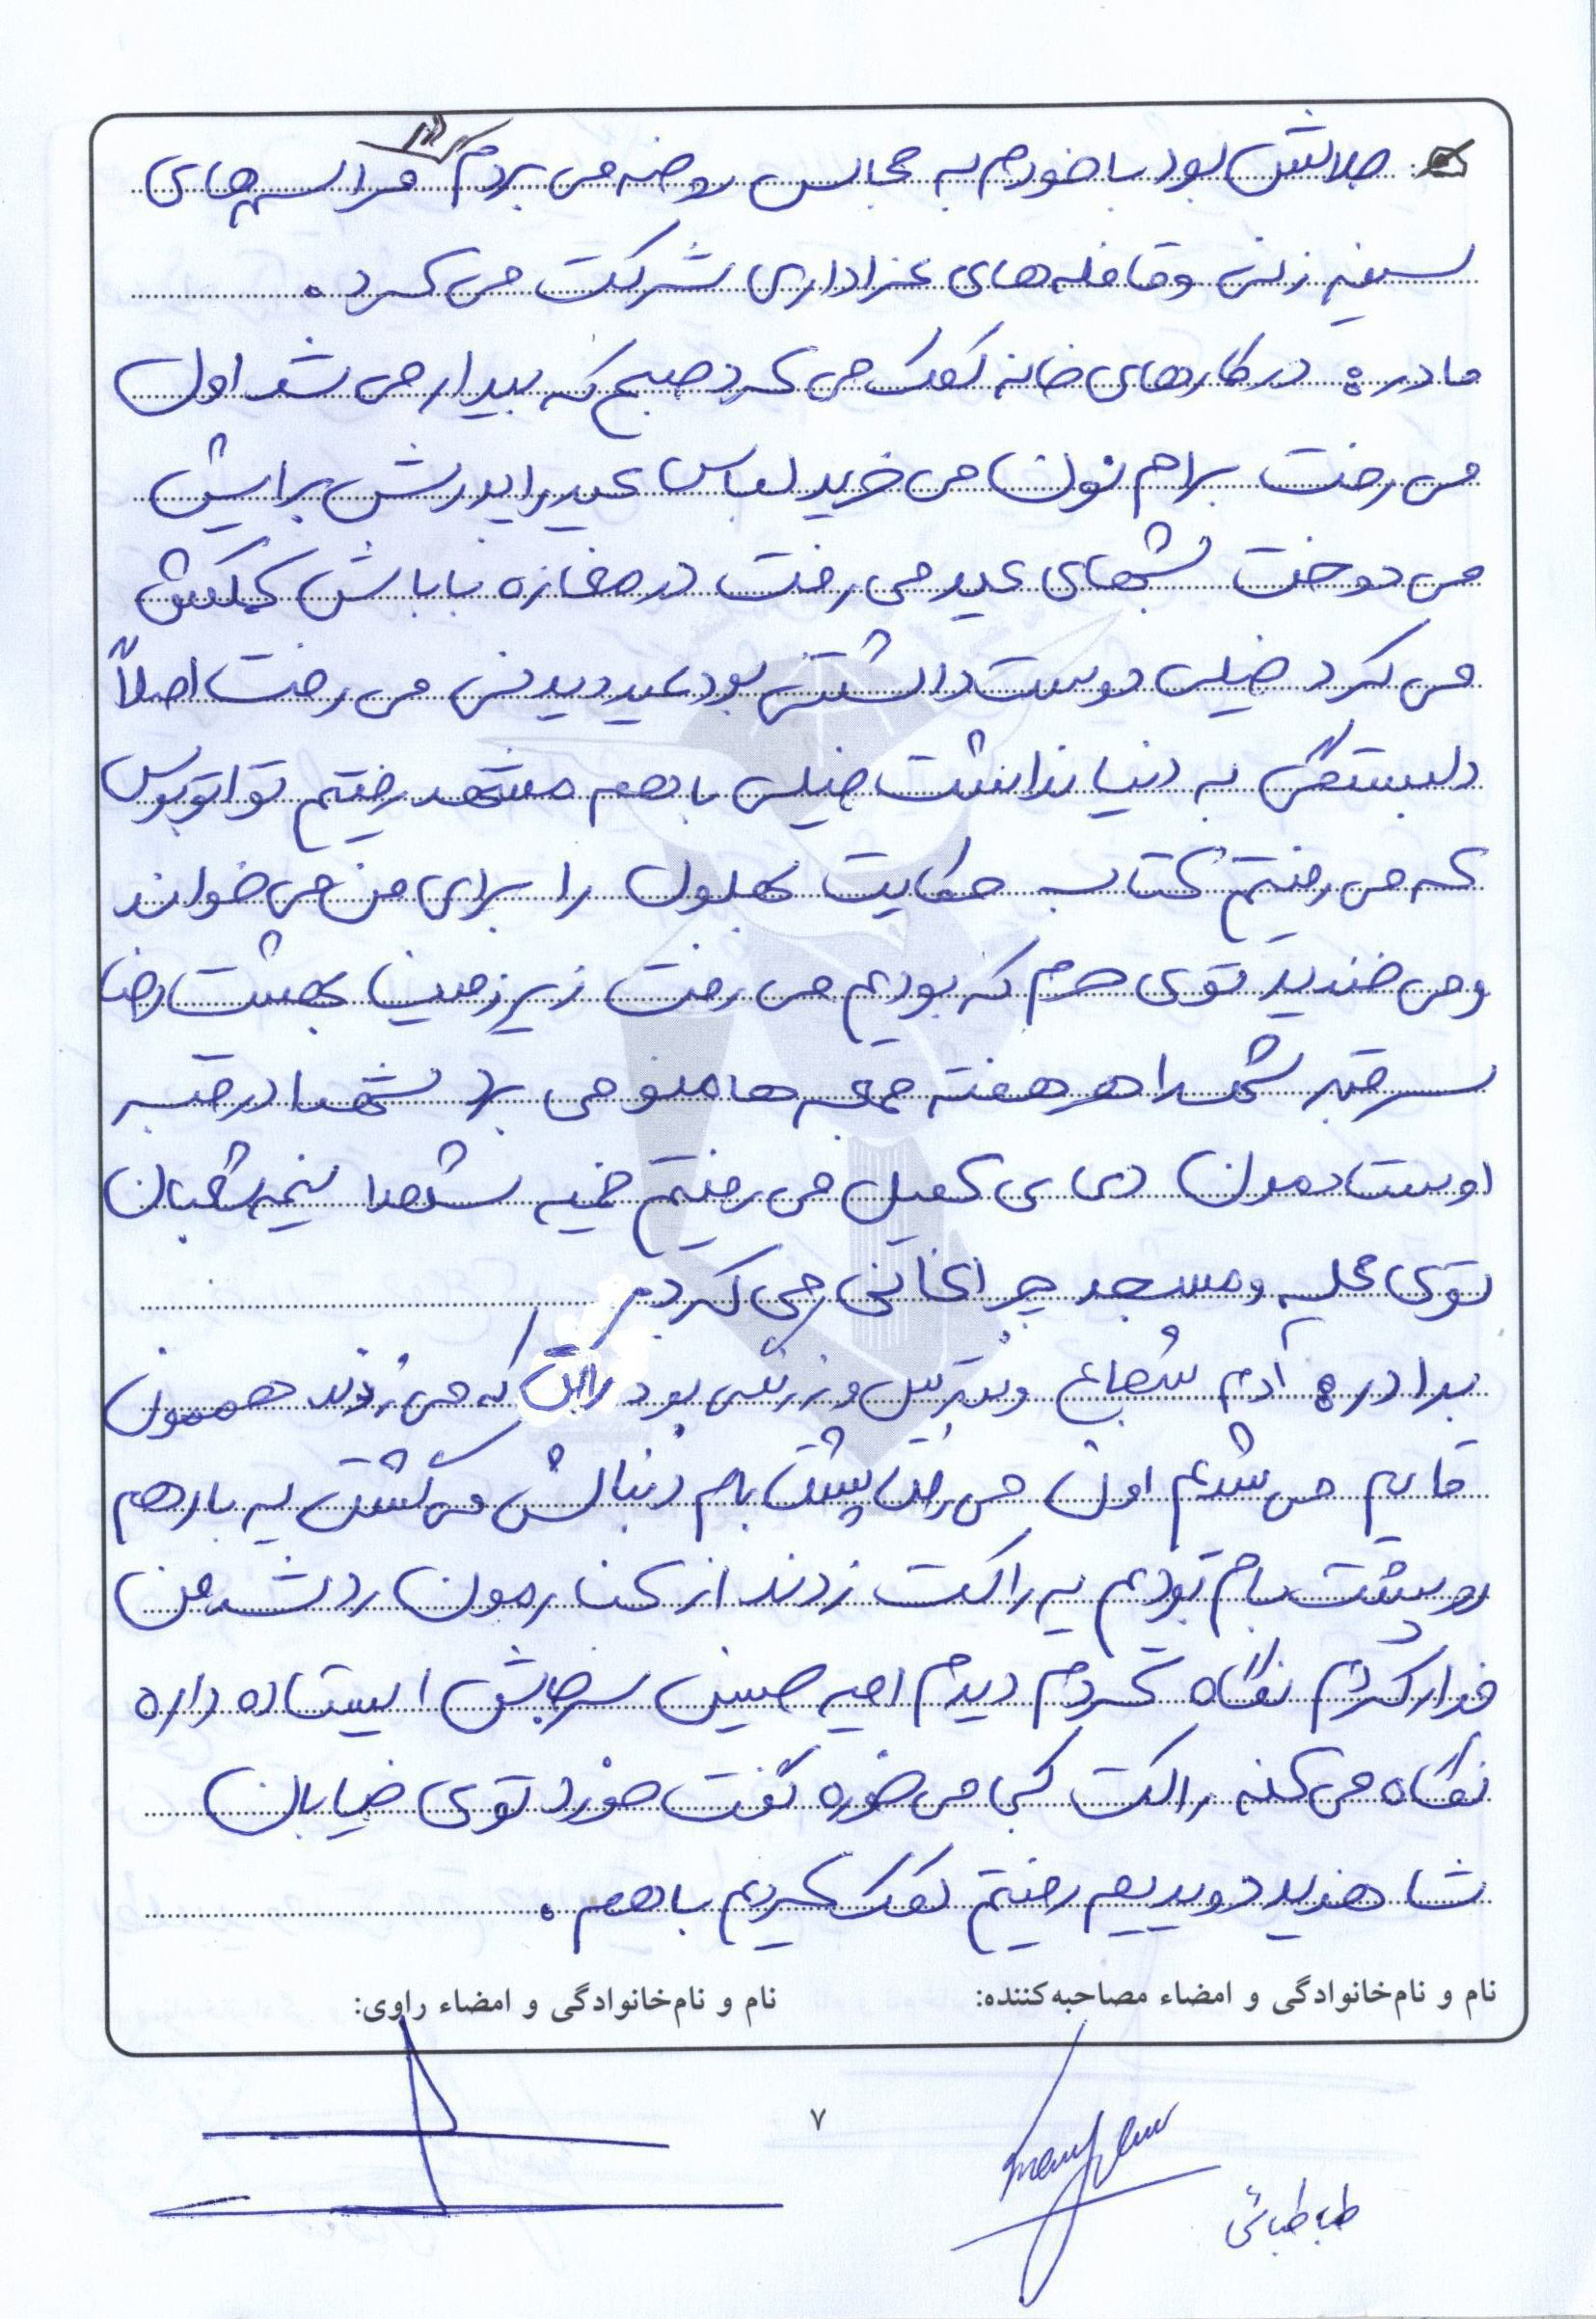 جلاتش بود با خودم به مجالس روضه می بردم مراسم های
سینه زنی و قافله های عزاداری شرکت می کرد.
مادره در کارهای خانه کمک می کرد صبح که بیدار می شد اول
می رفت برام نون می خرید لباس عید را پدرش برایش
می دوخت شبهای عید می رفت در مغازه باباش کمکش
می کرد خیلی دوست داشتنی بود عید دیدنی می رفت اصلاً
دلبستگی به دنیا نداشت خیلی با هم مشهد رفتیم تو اتوبوس
که می رفتیم کتاب حکایت بهلول را برای من می خواند
و می خندید توی حرم که بودیم می رفت زیرزمین بهشت رضا
سر قبر شهدا هر هفته جمعه ها منو می برد شهدا در قبه
اوستادمون دعای کمیل می رفتیم خیمه شهدا نیمه شعبان
توی محله و مسجد چراغانی می کردم
برادره آدم شجاع و نترس و زرنگی بود راکت که می زدند هممون
قایم می شدیم اون می رفت پشت بام دنبالش می گشت یه بار هم
رو پشت بام بودیم یه راکت زدند از کنارمون رد شد من
فرار کردم نگاه کردم دیدم امیر حسین سرجاش ایستاده داره
نگاه می کنه راکت کجا می خوره گفت خورد توی خیابان
شاهزید دویدیم رفتیم کمک کردیم با هم.
نام و نام‌خانوادگی و امضاء مصاحبه‌کننده:
نام و نام‌خانوادگی و امضاء راوی:
۷
طباطبائی